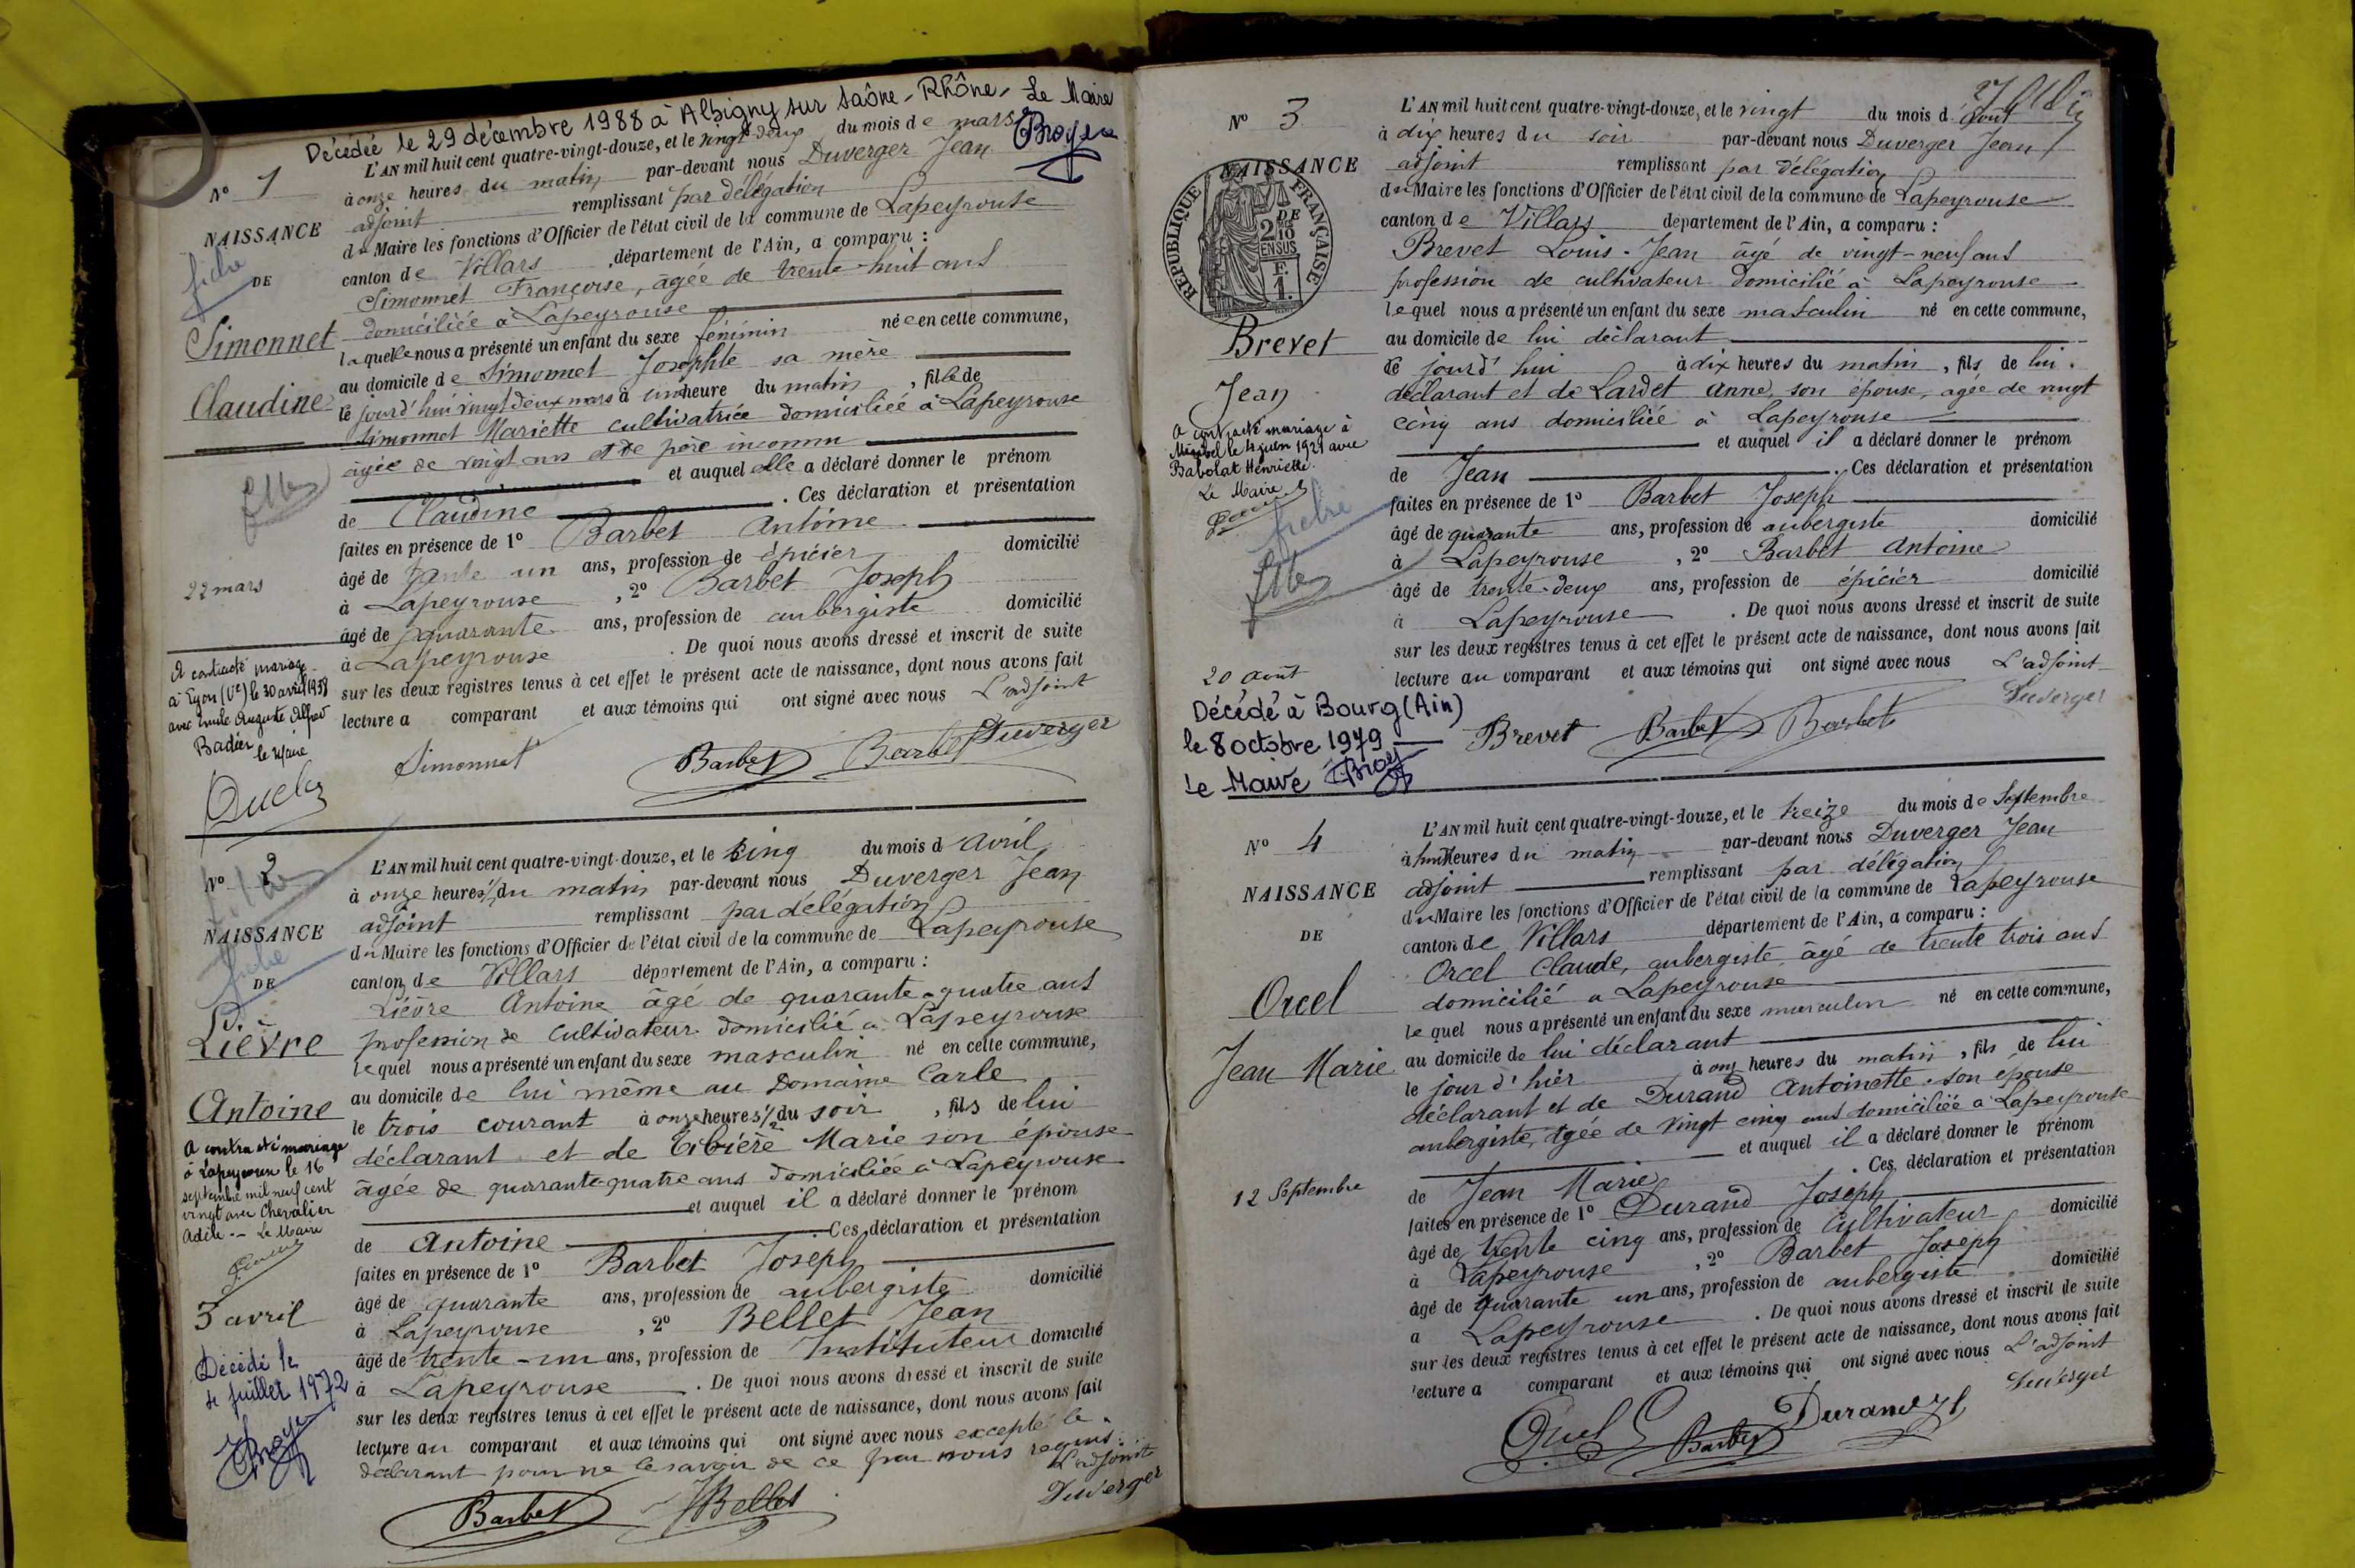 Décédée le 29 décembre 1988 à Albigny sur Saône - Rhône - Le Maire
L'AN mil huit cent quatre-vingt-douze, et le vingt deux du mois de mars
N° 1
à onze heures du matin par-devant nous Duverger Jean
adjoint remplissant par délégation
NAISSANCE
du Maire les fonctions d'Officier de l'état civil de la commune de Lapeyrouse
fiche
DE
canton de Villars, département de l'Ain, a comparu :
Simonnet Françoise, âgée de trente-huit ans
Simonnet
domiciliée à Lapeyrouse
laquelle nous a présenté un enfant du sexe féminin née en cette commune,
au domicile de Simonnet Josephte sa mère
Claudine
le jourd'hui vingt deux mars à une heure du matin, fille de
Simonnet Mariette cultivatrice domiciliée à Lapeyrouse
âgée de vingt ans et de père inconnu
et auquel elle a déclaré donner le prénom
de Claudine . Ces déclaration et présentation
faites en présence de 1° Barbet Antoine
âgé de trente un ans, profession de épicier domicilié
22 mars
à Lapeyrouse, 2° Barbet Joseph
âgé de quarante ans, profession de aubergiste domicilié
à Lapeyrouse . De quoi nous avons dressé et inscrit de suite
sur les deux registres tenus à cet effet le présent acte de naissance, dont nous avons fait
lecture a comparant et aux témoins qui ont signé avec nous L'adjoint
A contracté mariage
à Lyon (Ve) le 30 avril 1938
avec Emile Auguste Alfred
Badier
le Maire
Simonnet Barbet Barbet Duverger
N° 2
L'AN mil huit cent quatre-vingt-douze, et le cinq du mois d avril
à onze heures 1/2 du matin par-devant nous Duverger Jean
adjoint remplissant par délégation
NAISSANCE
du Maire les fonctions d'Officier de l'état civil de la commune de Lapeyrouse
fiche
DE
canton de Villars département de l'Ain, a comparu :
Lièvre Antoine âgé de quarante-quatre ans
profession de cultivateur domicilié à Lapeyrouse
Lièvre
lequel nous a présenté un enfant du sexe masculin né en cette commune,
au domicile de lui même au Domaine Carle
Antoine
le trois courant à onze heures 1/2 du soir, fils de lui
déclarant et de Tibière Marie son épouse
âgée de quarante quatre ans domiciliée à Lapeyrouse
et auquel il a déclaré donner le prénom
de Antoine Ces déclaration et présentation
faites en présence de 1° Barbet Joseph
âgé de quarante ans, profession de aubergiste domicilié
à Lapeyrouse, 2° Bellet Jean
âgé de trente-un ans, profession de Instituteur domicilié
à Lapeyrouse . De quoi nous avons dressé et inscrit de suite
sur les deux registres tenus à cet effet le présent acte de naissance, dont nous avons fait
lecture au comparant et aux témoins qui ont signé avec nous excepté le
déclarant pour ne le savoir de ce par nous requis.
L'adjoint
Duverger
Barbet JBellet
A contracté mariage
à Lapeyrouse le 16
septembre mil neuf cent
vingt avec Chevalier
Adèle -- Le Maire
3 avril
Décédé le
4 juillet 1972
N° 3
L'AN mil huit cent quatre-vingt-douze, et le vingt du mois d'Août
à dix heures du soir par-devant nous Duverger Jean
NAISSANCE
adjoint remplissant par délégation
du Maire les fonctions d'Officier de l'état civil de la commune de Lapeyrouse
REPUBLIQUE FRANÇAISE
DE
2 10es
EN SUS
F.
1.
canton de Villars département de l'Ain, a comparu :
Brevet Louis-Jean âgé de vingt-neuf ans
profession de cultivateur domicilié à Lapeyrouse
lequel nous a présenté un enfant du sexe masculin né en cette commune,
Brevet
au domicile de lui déclarant
le jourd'hui à dix heures du matin, fils de lui
Jean
déclarant et de Lardet Anne, son épouse, agée de vingt
cinq ans domiciliée à Lapeyrouse
et auquel il a déclaré donner le prénom
de Jean . Ces déclaration et présentation
faites en présence de 1° Barbet Joseph
âgé de quarante ans, profession de aubergiste domicilié
à Lapeyrouse, 2° Barbet Antoine
âgé de trente-deux ans, profession de épicier domicilié
à Lapeyrouse . De quoi nous avons dressé et inscrit de suite
sur les deux registres tenus à cet effet le présent acte de naissance, dont nous avons fait
lecture au comparant et aux témoins qui ont signé avec nous L'adjoint
Duverger
Brevet Barbet Barbet
A contracté mariage à
Miribel le 4 juin 1921 avec
Babolat Henriette.
Le Maire
fiche
20 août
Décédé à Bourg (Ain)
le 8 octobre 1979
Le Maire
N° 4
L'AN mil huit cent quatre-vingt-douze, et le treize du mois de Septembre
à huit heures du matin par-devant nous Duverger Jean
NAISSANCE
adjoint remplissant par délégation
du Maire les fonctions d'Officier de l'état civil de la commune de Lapeyrouse
DE
canton de Villars département de l'Ain, a comparu :
Orcel Claude, aubergiste âgé de trente trois ans
Orcel
domicilié a Lapeyrouse
lequel nous a présenté un enfant du sexe masculin né en cette commune,
Jean Marie
au domicile de lui déclarant
le jour d'hier à onze heures du matin, fils de lui
déclarant et de Durand Antoinette son épouse
aubergiste, âgée de vingt cinq ans domiciliée a Lapeyrouse
et auquel il a déclaré donner le prénom
12 Septembre
de Jean Marie . Ces déclaration et présentation
faites en présence de 1° Durand Joseph
âgé de trente cinq ans, profession de cultivateur domicilié
à Lapeyrouse, 2° Barbet Joseph
âgé de quarante un ans, profession de aubergiste domicilié
a Lapeyrouse . De quoi nous avons dressé et inscrit de suite
sur les deux registres tenus à cet effet le présent acte de naissance, dont nous avons fait
lecture a comparant et aux témoins qui ont signé avec nous L'adjoint
Duverger
Orcel Barbet Durand